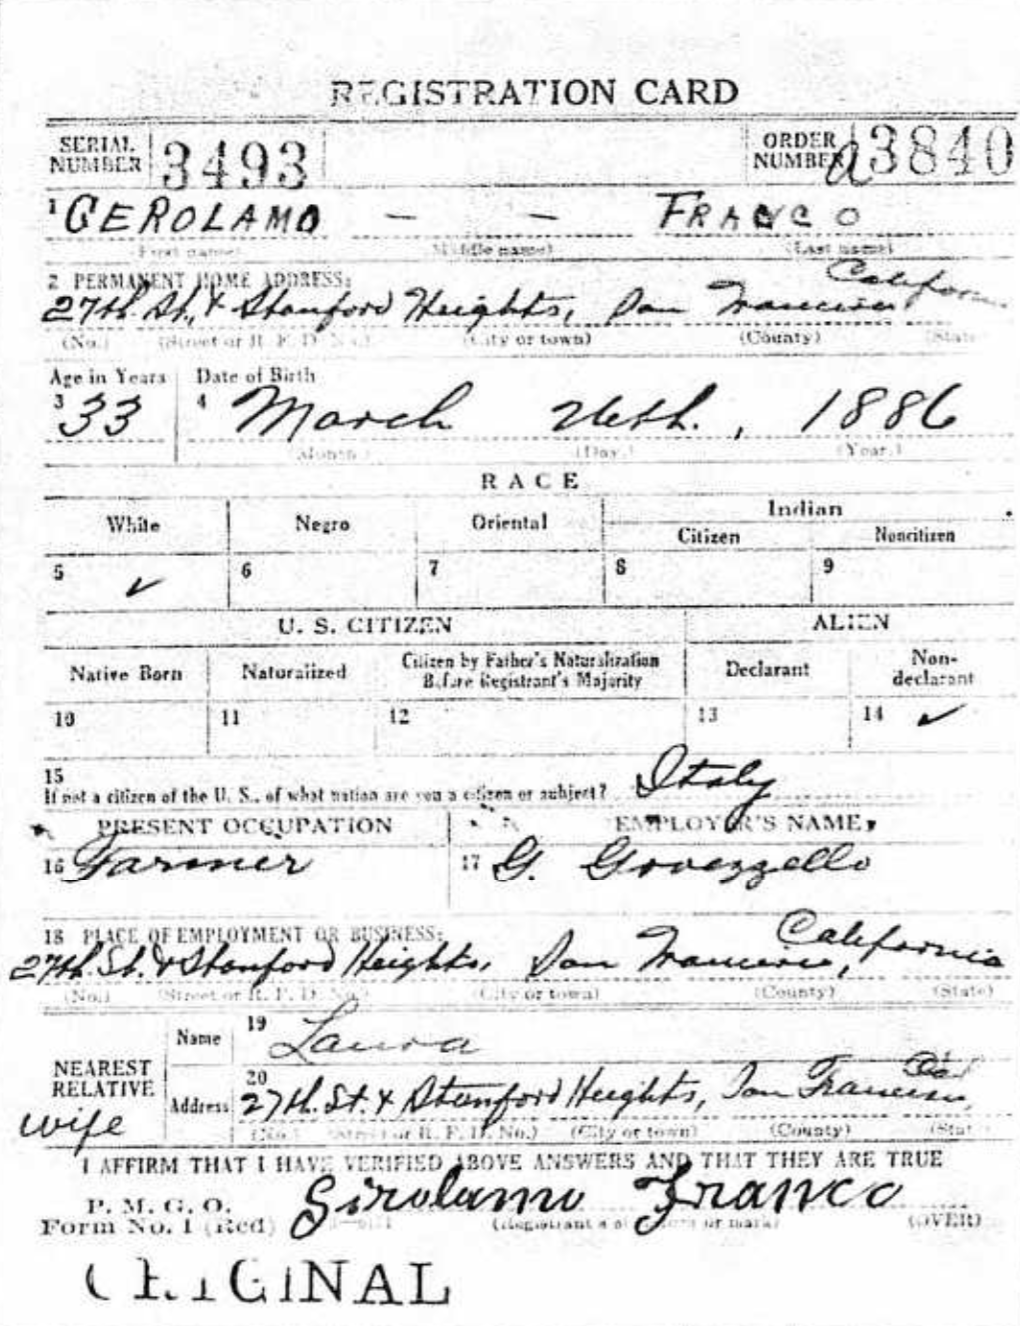 REGISTRATION CARD
SERIAL NUMBER 3493 ORDER NUMBER a3840
1 GEROLAMO - - FRANCO
(First name) (Middle name) (Last name)
2 PERMANENT HOME ADDRESS:
27th St. & Stanford Heights, San Francisco California
(No.) (Street or R. F. D. No.) (City or town) (County) (State)
Age in Years Date of Birth
3 33 4 March 26th., 1886
(Month.) (Day.) (Year.)
RACE
White Negro Oriental Indian
Citizen Noncitizen
5 ✓ 6 7 8 9
U. S. CITIZEN ALIEN
Native Born Naturalized Citizen by Father's Naturalization Before Registrant's Majority Declarant Non-declarant
10 11 12 13 14 ✓
15
If not a citizen of the U. S., of what nation are you a citizen or subject? Italy
PRESENT OCCUPATION EMPLOYER'S NAME
16 Farmer 17 G.
18 PLACE OF EMPLOYMENT OR BUSINESS:
27th. St. & Stanford Heights, San Francisco, California
(No.) (Street or R. F. D. No.) (City or town) (County) (State)
NEAREST RELATIVE wife
Name 19 Laura
Address 20 27th. St. & Stanford Heights, San Francisco, Cal
(No.) (Street or R. F. D. No.) (City or town) (County) (State)
I AFFIRM THAT I HAVE VERIFIED ABOVE ANSWERS AND THAT THEY ARE TRUE
P. M. G. O.
Form No. 1 (Red) Girolamo Franco
(Registrant's signature or mark) (OVER)
ORIGINAL